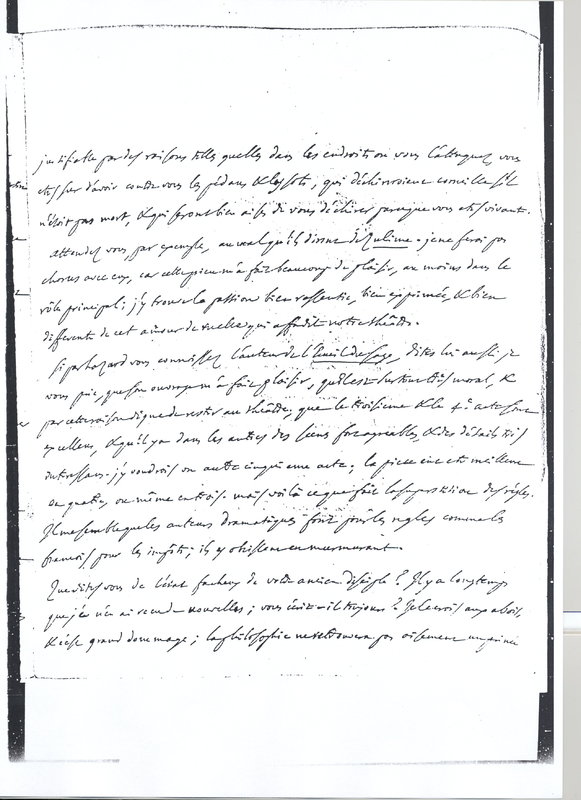 justifiable par des raisons telles quelles dans les endroits où vous l'attaquez, vous
etes sur d'avoir contre vous les pédans & les sots, qui déchireroient corneille s'il
n'étoit pas mort, & qui seront bien aises de vous déchirer parceque vous etes vivant.
attendez vous, par exemple, au mal qu'ils diront de Zulime. je ne ferai pas
chorus avec eux, car cette piece m'a fait beaucoup de plaisir, au moins dans le
rôle principal; j'y trouve la passion bien ressentie, bien exprimée, & bien
differente de cet amour de ruelle qui affadit notre théâtre.
Si par hazard vous connoissez l'auteur de l'Ecueil du sage, dites lui aussi, je
vous prie, que son ouvrage m'a fait plaisir, qu'il est surtout très moral, &
par cette raison digne de rester au théâtre, que le troisieme & le 4e acte sont
excellens, & qu'il y a dans les autres des scenes fort agreables, & des détails très
interessans. j'y voudrois un autre cinquieme acte; la piece eut été meilleure
en quatre, ou même en trois. mais voilà ce que fait la superstition des règles.
Il me semble que les auteurs dramatiques sont pour les regles comme les
françois pour les impôts; ils y obéissent en murmurant.
Que dites vous de l'état facheux de votre ancien disciple? Il y a longtemps
que je n'en ai reçu de nouvelles; vous écrit-il toujours? Je le crois aux abois,
& c'est grand dommage; la philosophie ne retrouvera pas aisément un prince